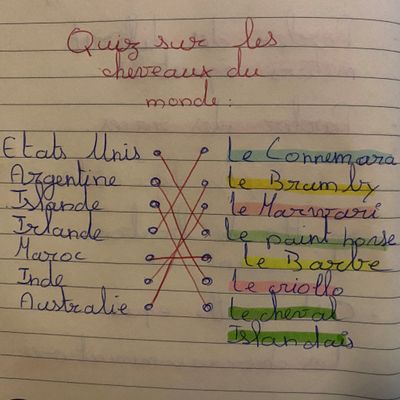 Quiz sur les
cheveaux du
monde :
Etats Unis
Argentine
Islande
Irlande
Maroc
Inde
Australie
Le Connemara
Le Brumby
Le Marwari
Le paint horse
Le Barbe
Le criollo
Le cheval
Islandais